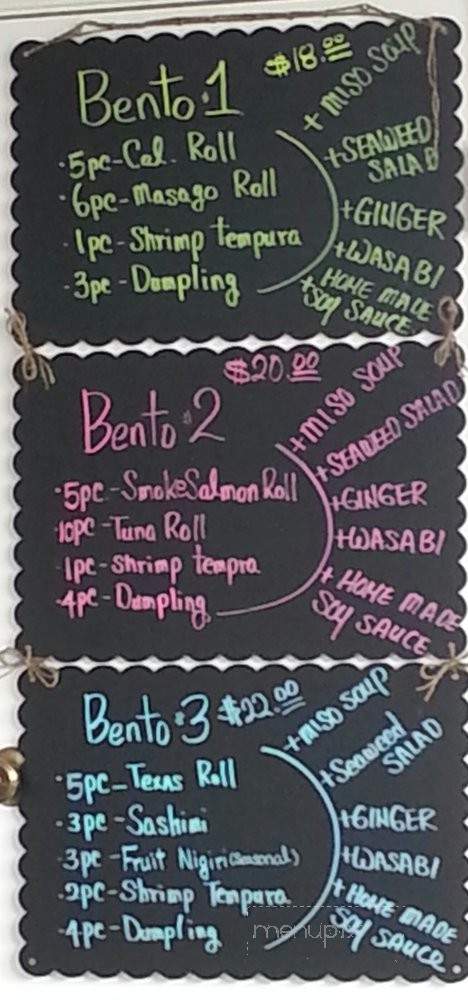 $18.00
Bento #1
·5pc-Cal. Roll
·6pc-Masago Roll
·1pc-Shrimp tempura
·3pc-Dumpling
+ MISO SOUP
+SEAWEED
SALAD
+GINGER
+WASABI
+ HOME MADE
SOY SAUCE
$20.00
Bento #2
·5pc-Smoke Salmon Roll
·10pc-Tuna Roll
·1pc-Shrimp tempra
·4pc-Dumpling
+MISO SOUP
+SEAWEED SALAD
+GINGER
+WASABI
+ HOME MADE
SOY SAUCE
Bento #3 $22.00
·5pc-Texas Roll
·3pc-Sashimi
·3pc-Fruit Nigiri (Seasonal)
·2pc-Shrimp Tempura
·4pc-Dumpling
+MISO SOUP
+Seaweed
SALAD
+GINGER
+WASABI
+ HOME MADE
SOY SAUCE
menupix